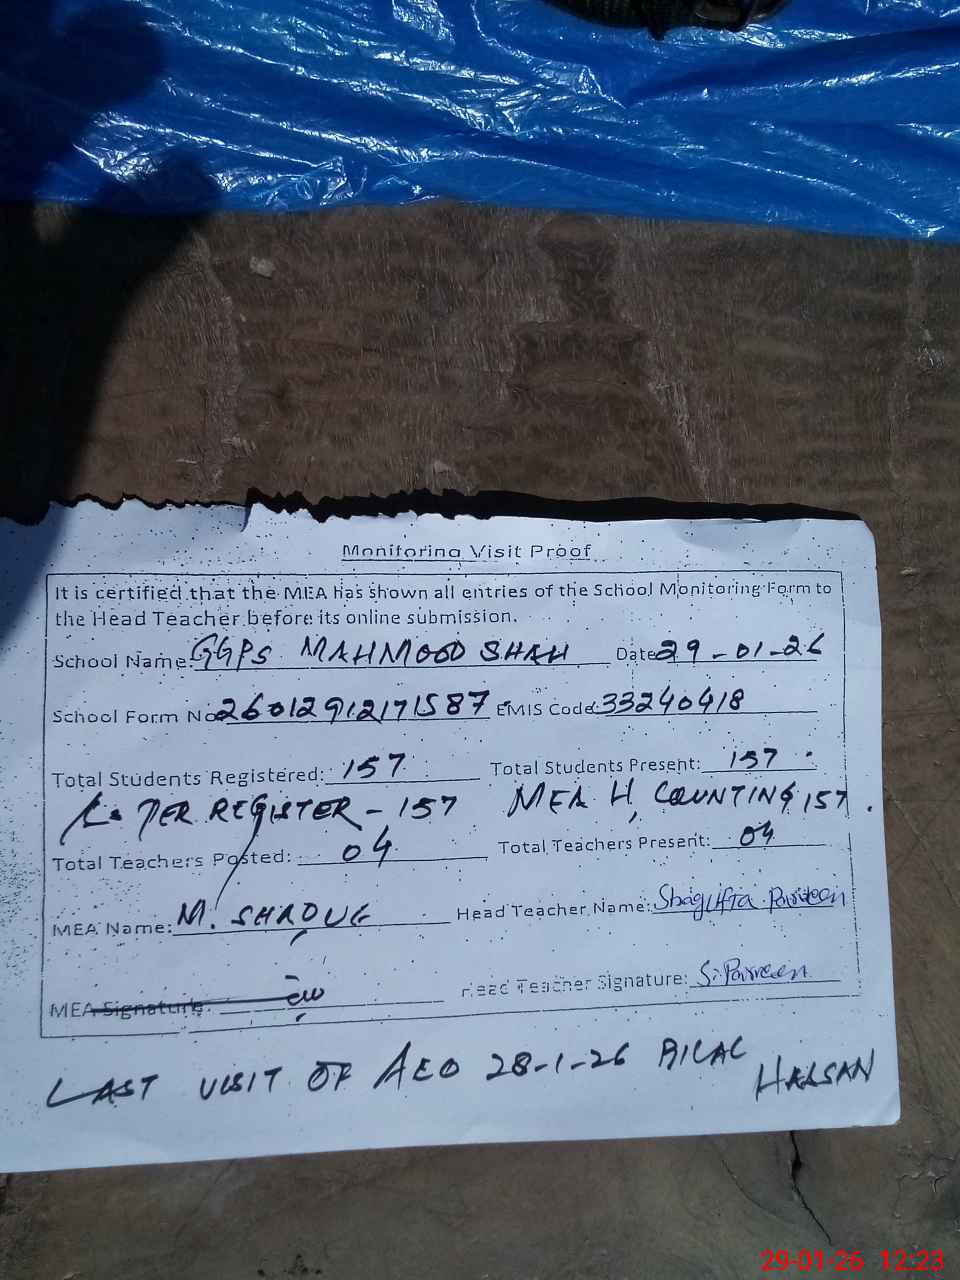 Monitoring Visit Proof
It is certified that the MEA has shown all entries of the School Monitoring Form to
the Head Teacher before its online submission.
School Name: GGPS MAHMOOD SHAH Date 29-01-26
School Form No 26012912171587 EMIS Code: 33240418
Total Students Registered: 157 Total Students Present: 157
PER REGISTER - 157 MEA H, COUNTING 157.
Total Teachers Posted: 04 Total Teachers Present: 04
MEA Name: M. Head Teacher Name: Shagufta Parveen
MEA Signature: Head Teacher Signature: S. Parveen
LAST VISIT OF AEO 28-1-26
29-01-26 12:23